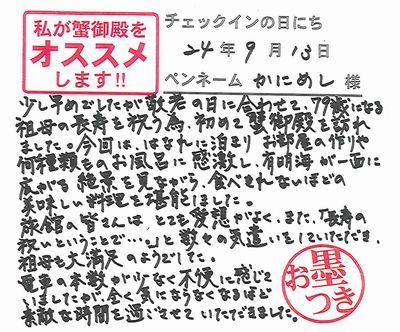 私が蟹御殿を
オススメ
します!!
チェックインの日にち
24年9月15日
ペンネーム かにめし 様
少し早めでしたが敬老の日に合わせて、79歳になる
祖母の長寿を祝う為、初めて蟹御殿を訪れ
ました。今回は、はなれに泊まりお部屋の作りや
何種類ものお風呂に感激し、有明海が一面に
広がる絶景を見ながら、食べきれないほどの
美味しい料理を堪能しました。
旅館の皆さんは、とても愛想がよく、また、「長寿の
祝いということで…」と数々の気遣いをしていただき、
祖母も大満足のようでした。
電車の本数が少なく不便に感じて
いましたが、全く気にならなくなるほど
素敵な時間を過ごさせていただきました。
お墨つき